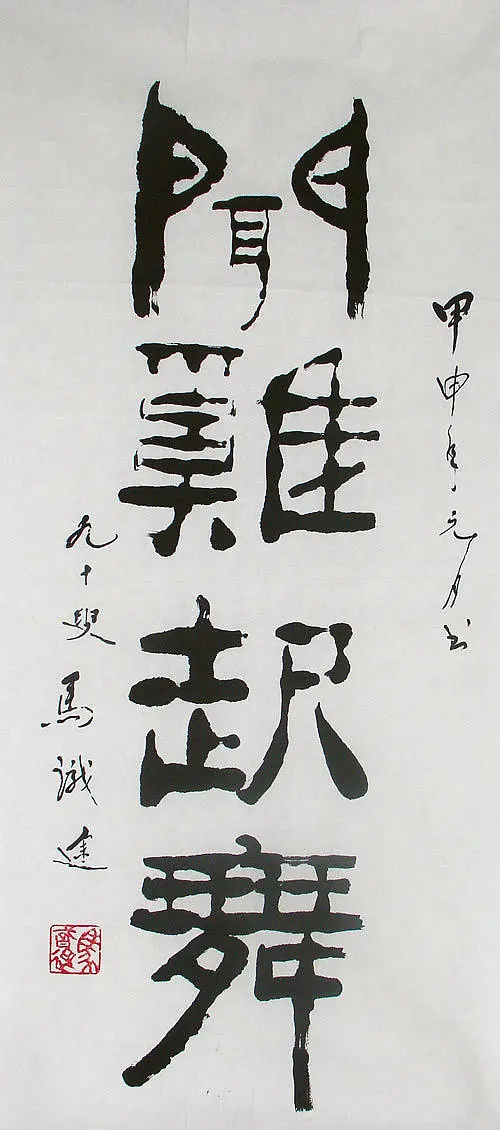 甲申年元月书
聞雞起舞
九十叟馬識途